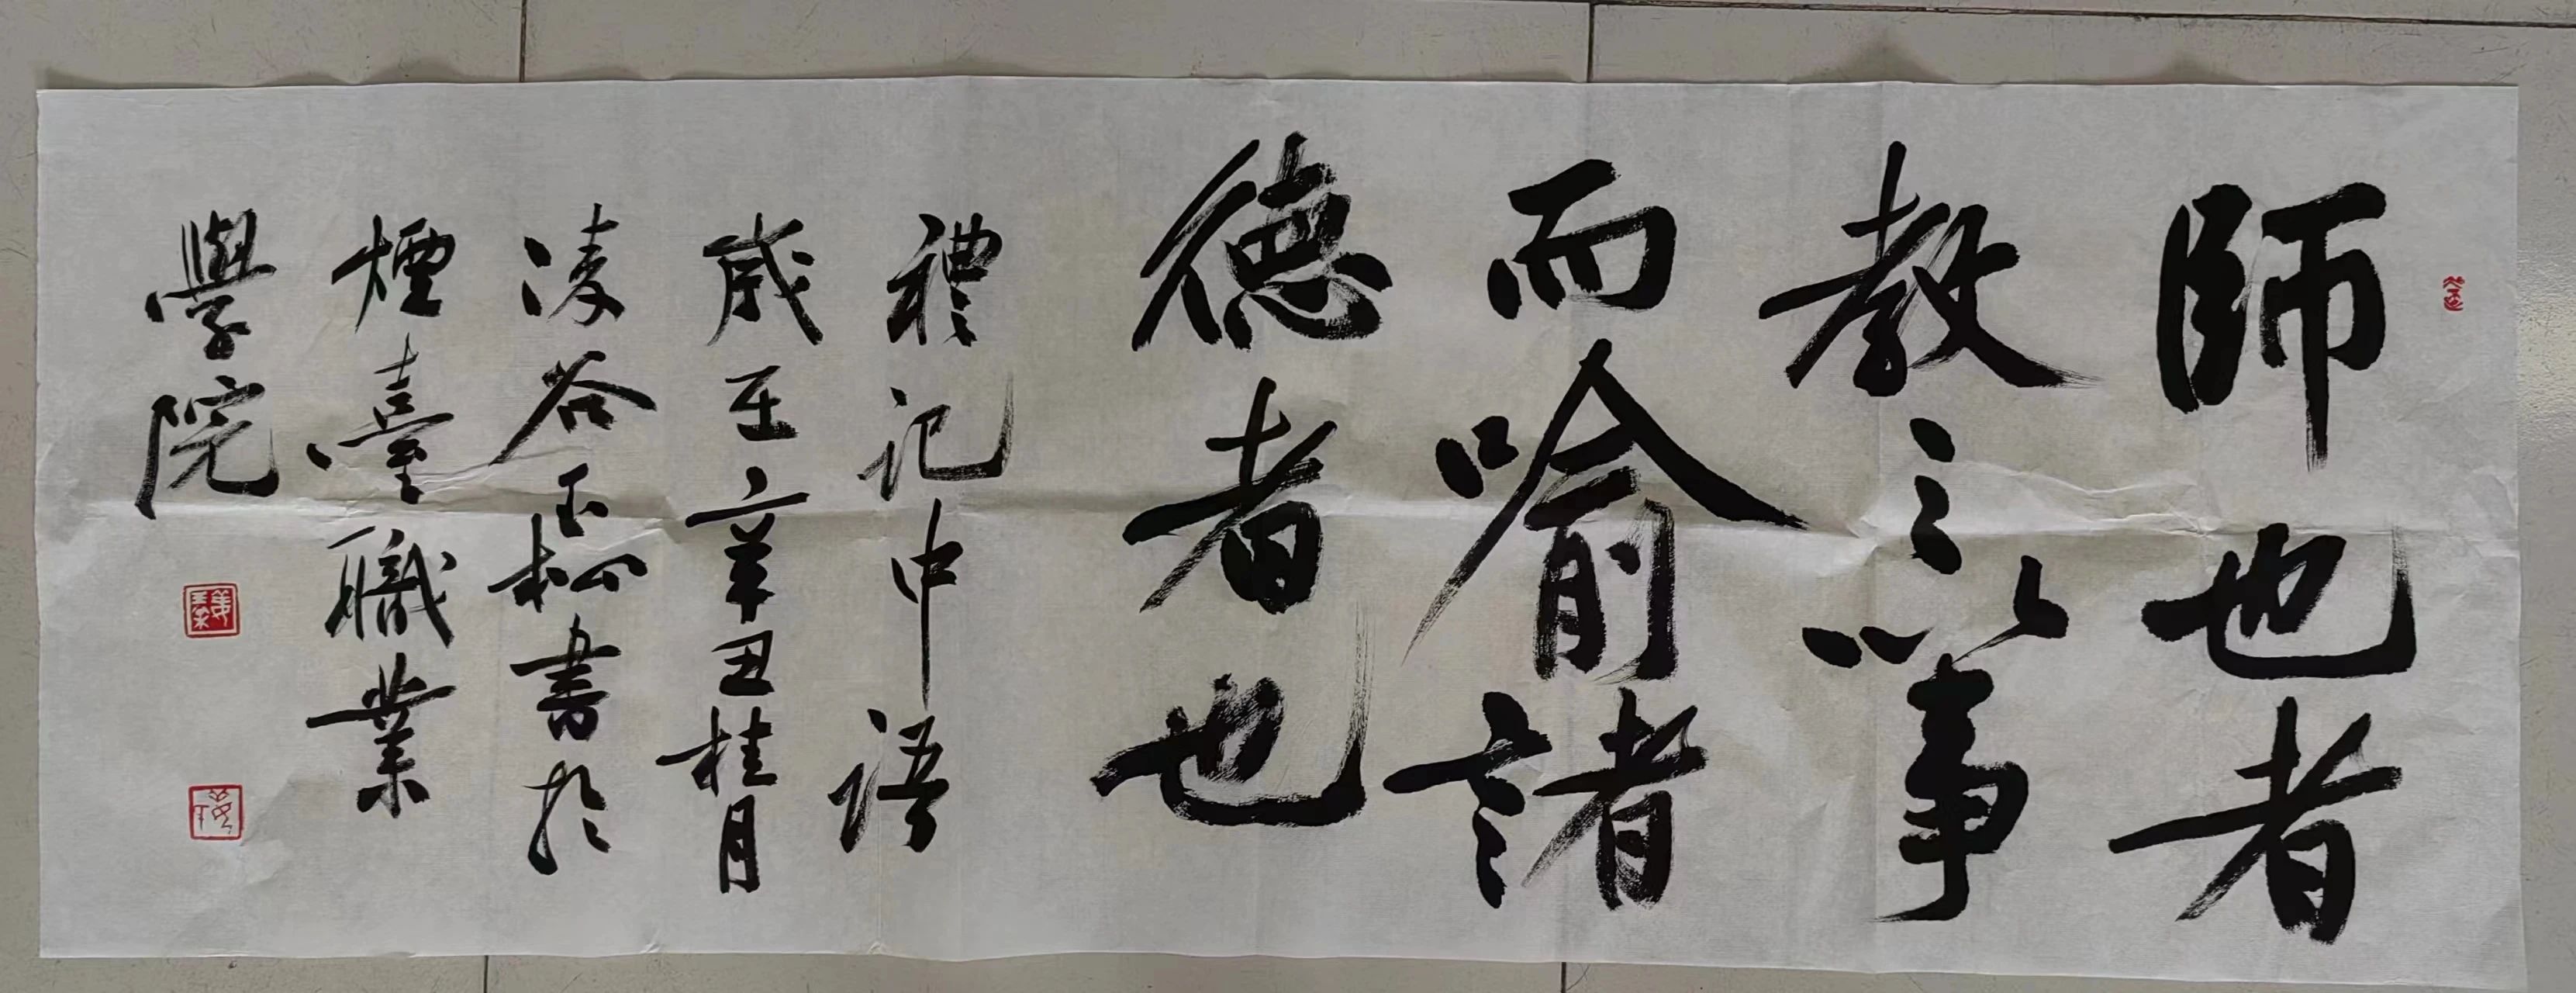 師也者
教之以事
而喻諸
德者也
禮记中语
歲在辛丑桂月
凌谷 松書於
煙臺職業
學院